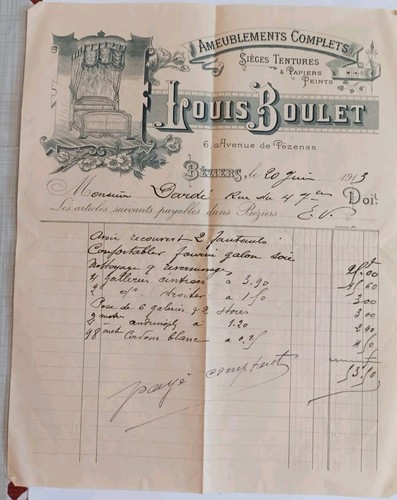 AMEUBLEMENTS COMPLETS
SIÈGES TENTURES
& PAPIERS
PEINTS
LOUIS BOULET
6, Avenue de Pézenas
BÉZIERS, le 20 Juin 1913
Monsieur Dardé Rue du 4 Doit
Les articles suivants payables dans Béziers E.V.
Avoir recouvert 2 fauteuils
Confortables fourni galon soie
Nettoyage & 25.00
4 galeries cintrées à 3.90
2 d° droites à 1.50 3.00
Pose de 6 galeries & 2 stores 3.00
2 à 1.20 2.40
18 met Cordons blanc à 0.25 4.50
53.50
payé comptant